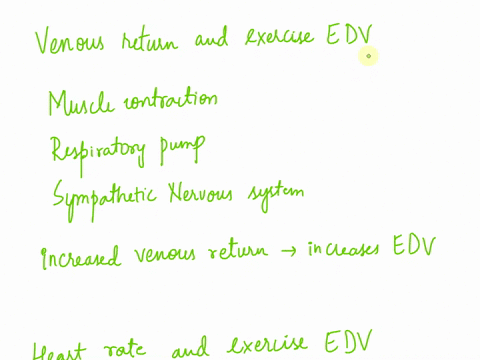 Venous return and exercise EDV
Muscle contraction
Respiratory pump
Sympathetic Nervous system
Increased venous return → increases EDV
Heart rate and exercise EDV